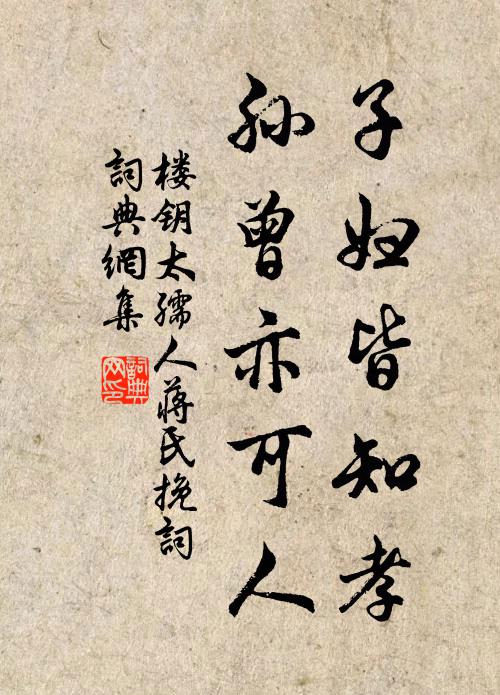 子妇皆知孝
孙曾亦可人
楼钥太孺人蒋氏挽词
詞典網集
詞典
网印